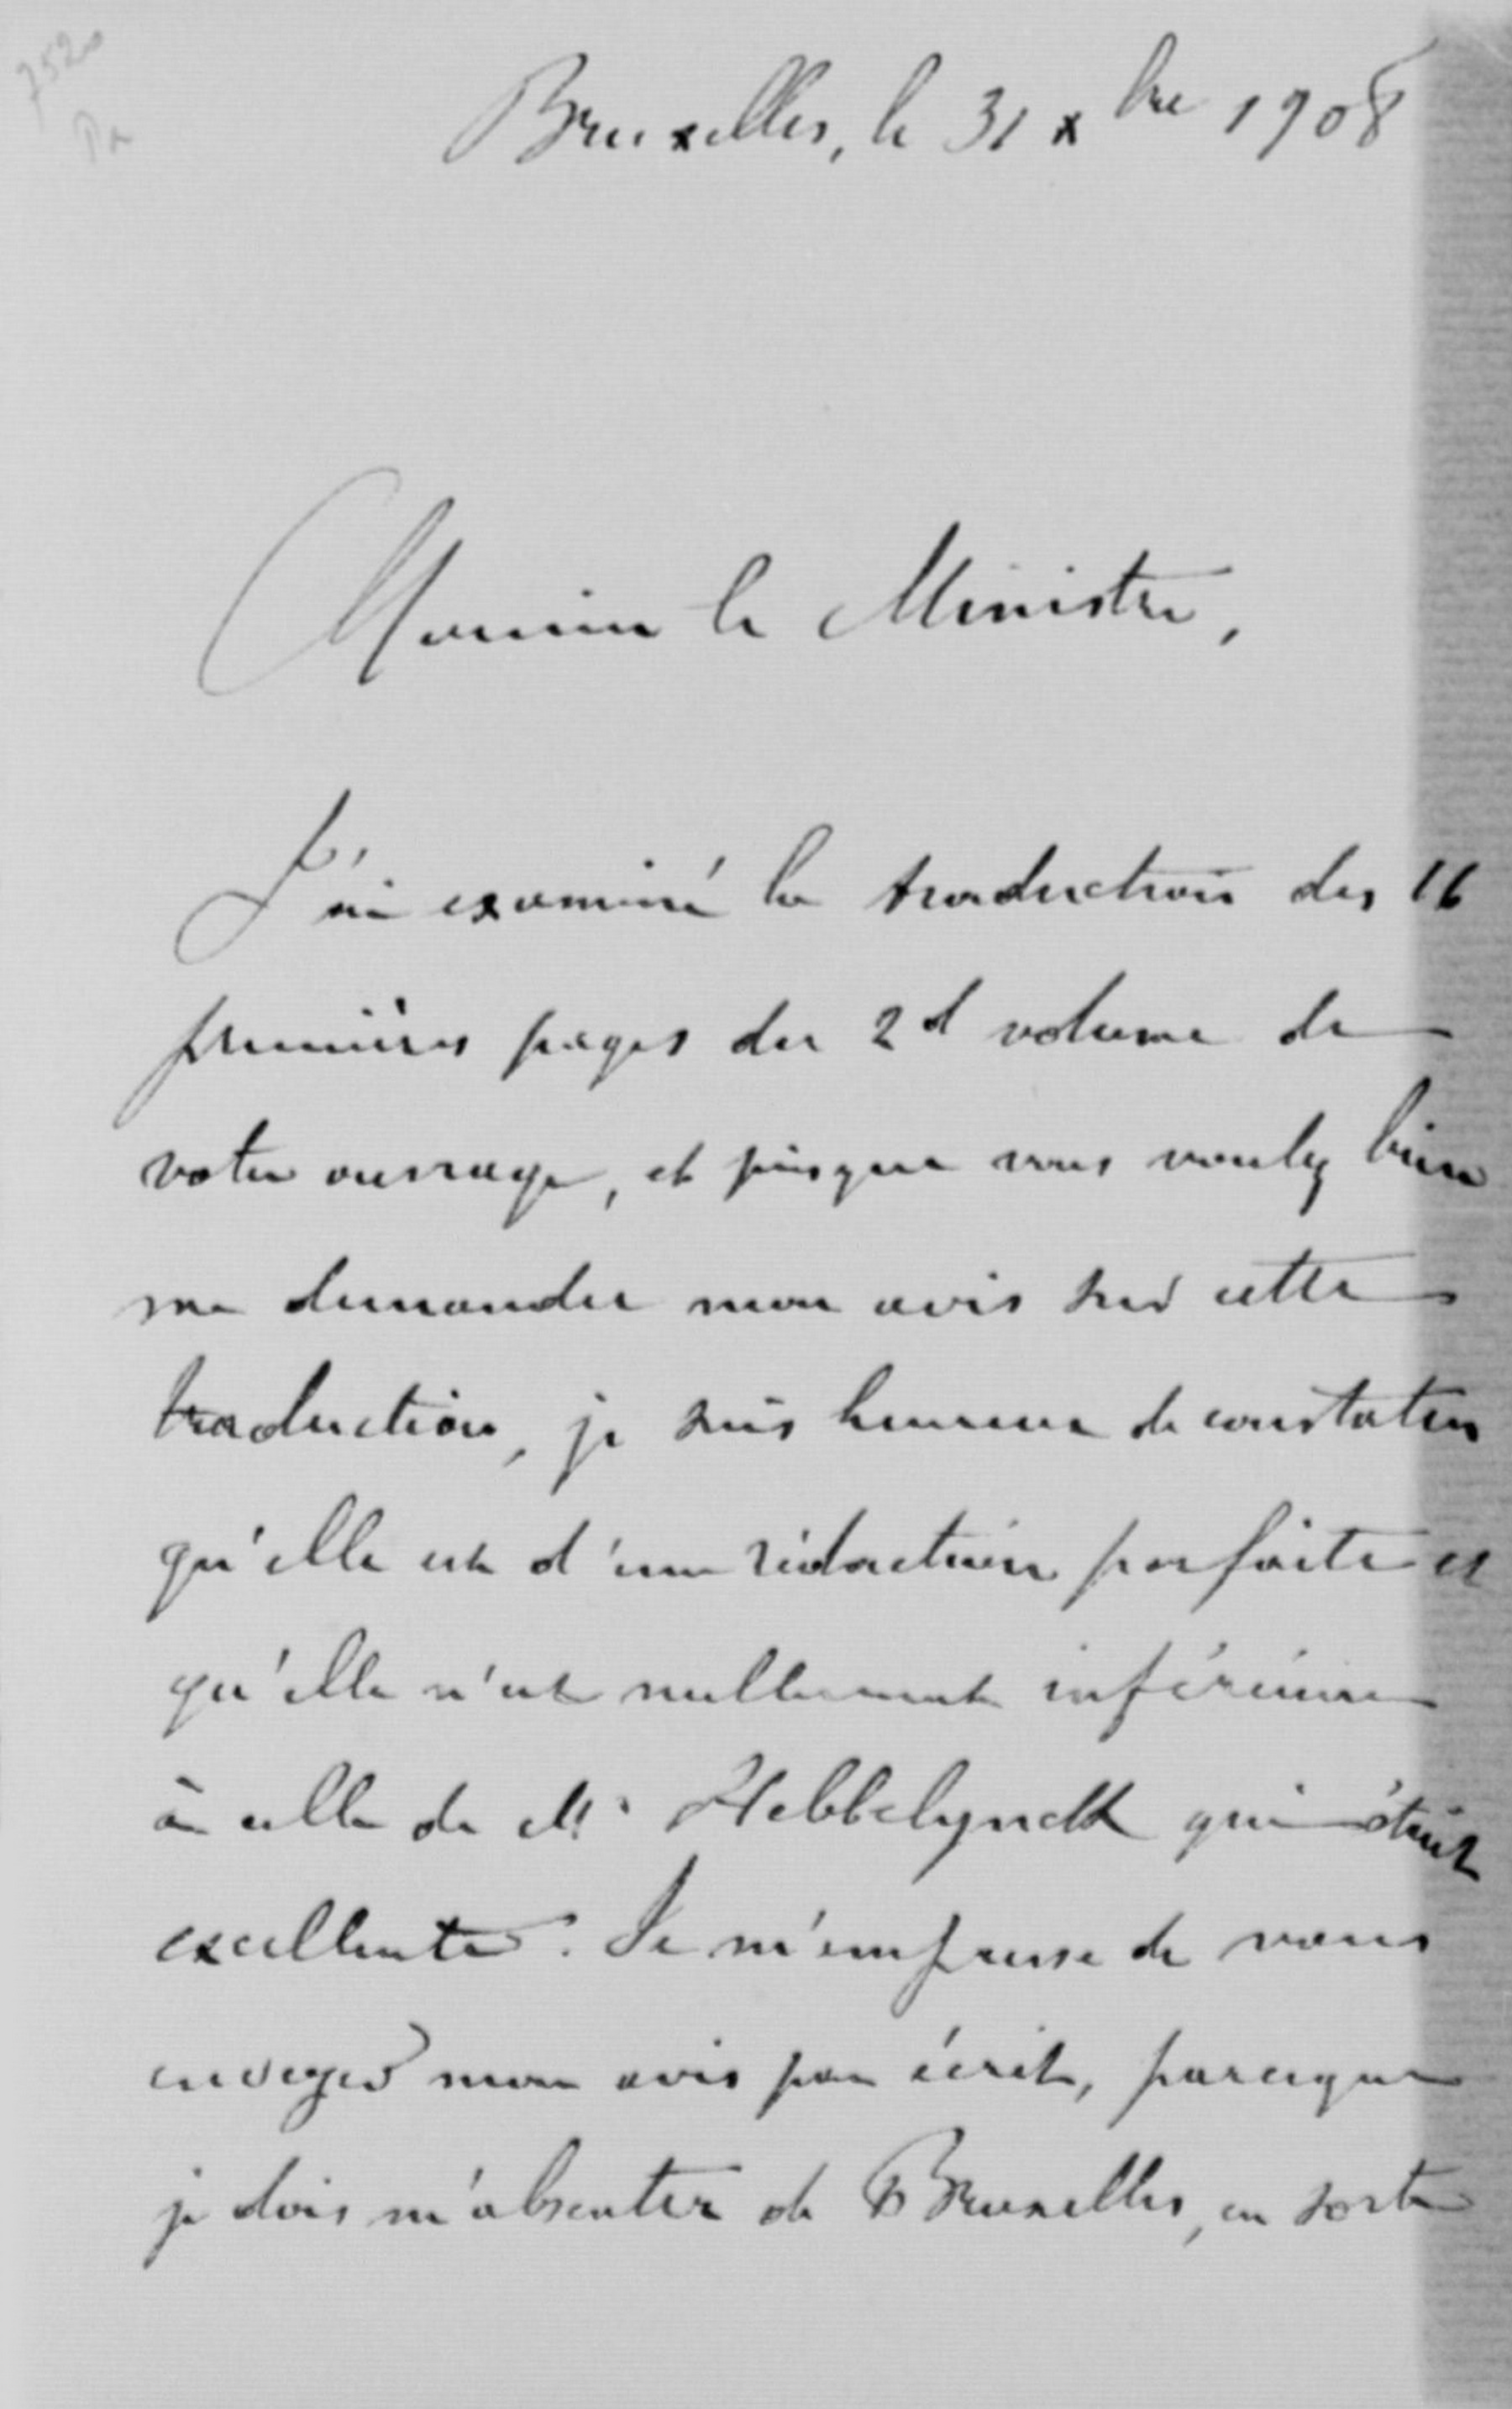 7520
Pa
Bruxelles, le 31 xbre 1908
Monsieur le Ministre,
J'ai examiné la traduction des 16
premières pages du 2d volume de
votre ouvrage, et puisque vous voulez bien
me demander mon avis sur cette
traduction, je suis heureux de constater
qu'elle est d'une rédaction parfaite et
qu'elle n'est nullement inférieure
à celle de Mr Hebbelynck qui était
excellente. Je m'empresse de vous
envoyer mon avis par écrit, parceque
je dois m'absenter de Bruxelles, en sorte